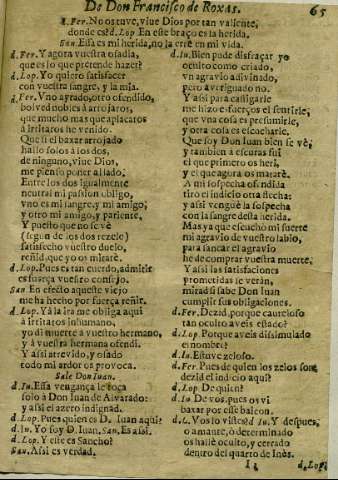 De Don Francisco de Roxas.
65
d. Fer. No os tuve, viue Dios por tan valiente,
donde es? d. Lop. En este braço es la herida.
San. Essa es mi herida, no la erré en mi vida.
d. Fer. Y agora vuestra osadia,
que es lo que pretende hazer?
d. Lop. Yo quiero satisfacer
con vuestra sangre, y la mia.
d. Fer. Vno ayrado, otro ofendido,
bolved nobles à arrojaros,
que mucho mas que aplacaros
à irritaros he venido.
Que si el baxar arrojado
hallo solo à los dos,
de ninguno, viue Dios,
me pienso poner al lado.
Entre los dos igualmente
neutral mi passion obligo,
vno es mi sangre, y mi amigo,
y otro mi amigo, y pariente.
Y puesto que no se vè
(segun de los dos rezelo)
satisfecho vuestro duelo,
reñid, que yo os mirarè.
d. Lop. Pues es tan cuerdo, admitir
es fuerça vuestro consejo.
San. En efecto aqueste viejo
me ha hecho por fuerça reñir.
d. Lop. Yà la ira me obliga aqui
à irritaros inhumano,
yo dì muerte à vuestro hermano,
y à vuestra hermana ofendi.
Y assi atrevido, y osado
todo mi ardor os provoca.
Sale Don Iuan.
d. Iu. Essa vengança le toca
solo à Don Iuan de Alvarado:
y assi el azero indignad.
d. Lop. Pues quien es D. Iuan aqui?
d. Iu. Yo soy D. Iuan. San. Es assi.
d. Lop. Y este es Sancho?
San. Assi es verdad.
d. Iu. Bien pude disfraçar yo
oculto como criado,
vn agravio adivinado,
pero averiguado no.
Y assi para castigarle
me hizo esfuerços el sentirle,
que vna cosa es presumirle,
y otra cosa es escucharle.
Que soy Don Iuan bien se vè,
y tambien à escuras fui
el que primero os herì,
y el que agora os matarè.
A mi sospecha ofendida
tiro el indicio otra flecha:
y assi venguè la sospecha
con la sangre desta herida.
Mas ya que escuchò mi suerte
mi agravio de vuestro labio,
para sanear el agravio
he de comprar vuestra muerte,
Y assi las satisfaciones
prometidas se veràn,
mirad si sabe Don Iuan
cumplir sus obligaciones.
d. Fer. Dezid, porque cauteloso
tan oculto aveis estado?
d. Lop. Porque aveis dissimulado
el nombre?
d. Iu. Estuve zeloso.
d. Fer. Pues de quien los zelos son,
dezid el indicio aqui?
d. Lop. De quien?
d. Iu. De vos, pues os vi
baxar por esse balcon.
d. L. Vos lo visteis? d. Iu. Y despues,
o amante, ò determinado
os hallè oculto, y cerrado
dentro del quarto de Inès.
d. Lop.